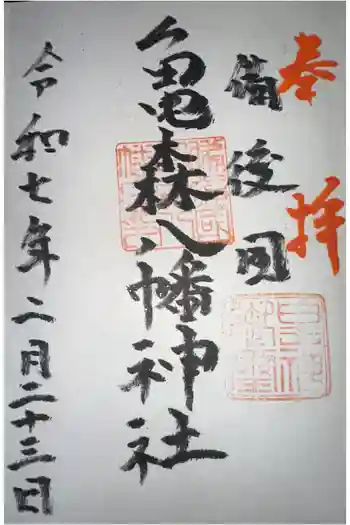 奉拝
備後國
亀森八幡神社
令和七年二月二十三日